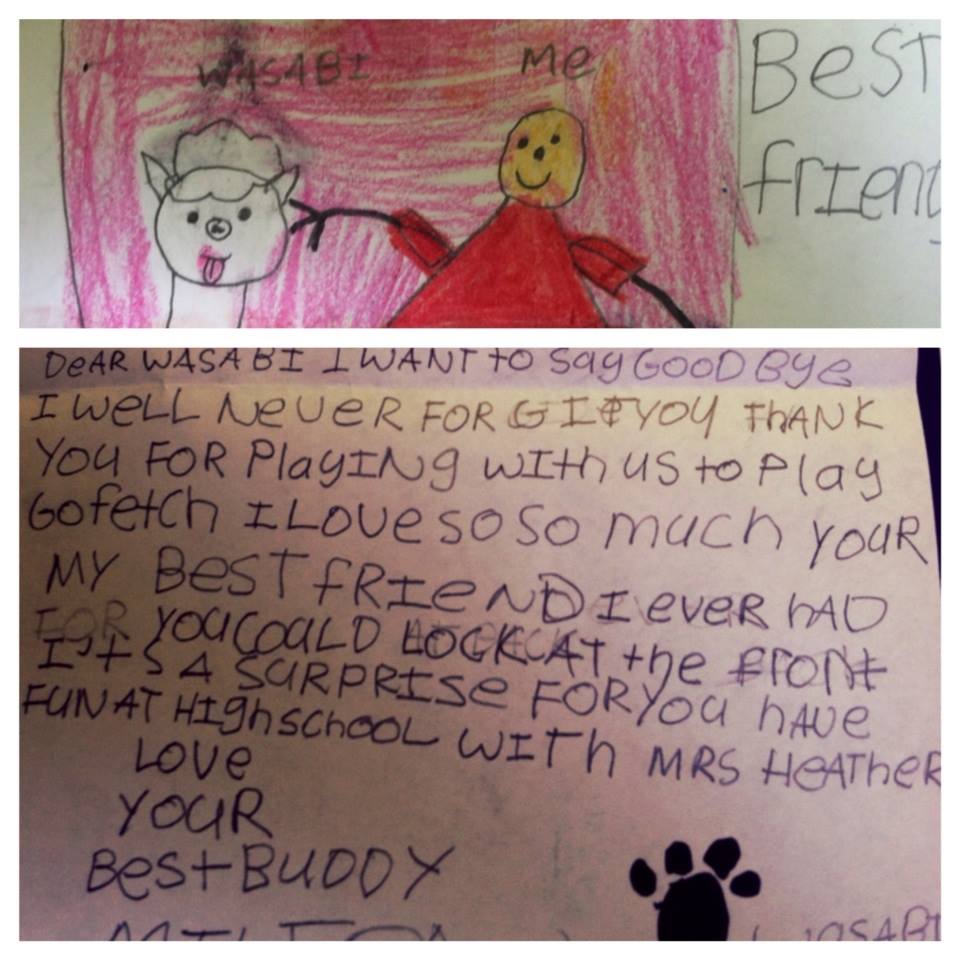 WASABI
Me
BeST
frIend
DeAR WASABI I WANT to Say GOOD Bye
I WeLL NeVeR FOR GIt YOU ThANK
YOU FOR PlayINg wITh US to Play
Gofetch I Love so so much YOUR
MY BeST fRIeND I eveR hAD
FOR YOU COULD LOOK AT the fRONt
I't S A SURPRISe FOR YOU hAVe
FUN AT HIghschool wITh MRS HeATheR
Love
YOUR
Best BUDDY
MILTON
WASABI